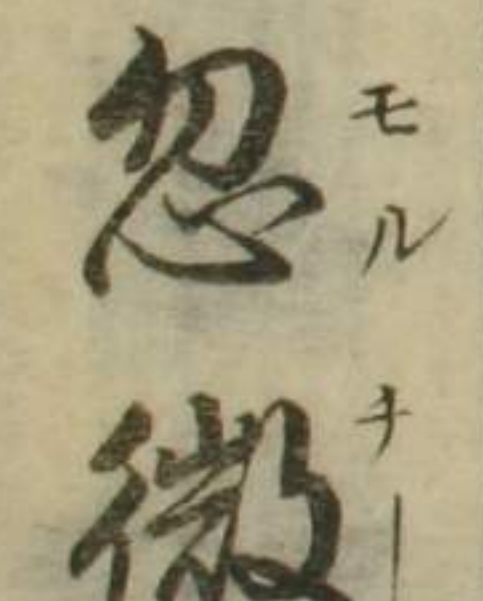 忽微
モルチー